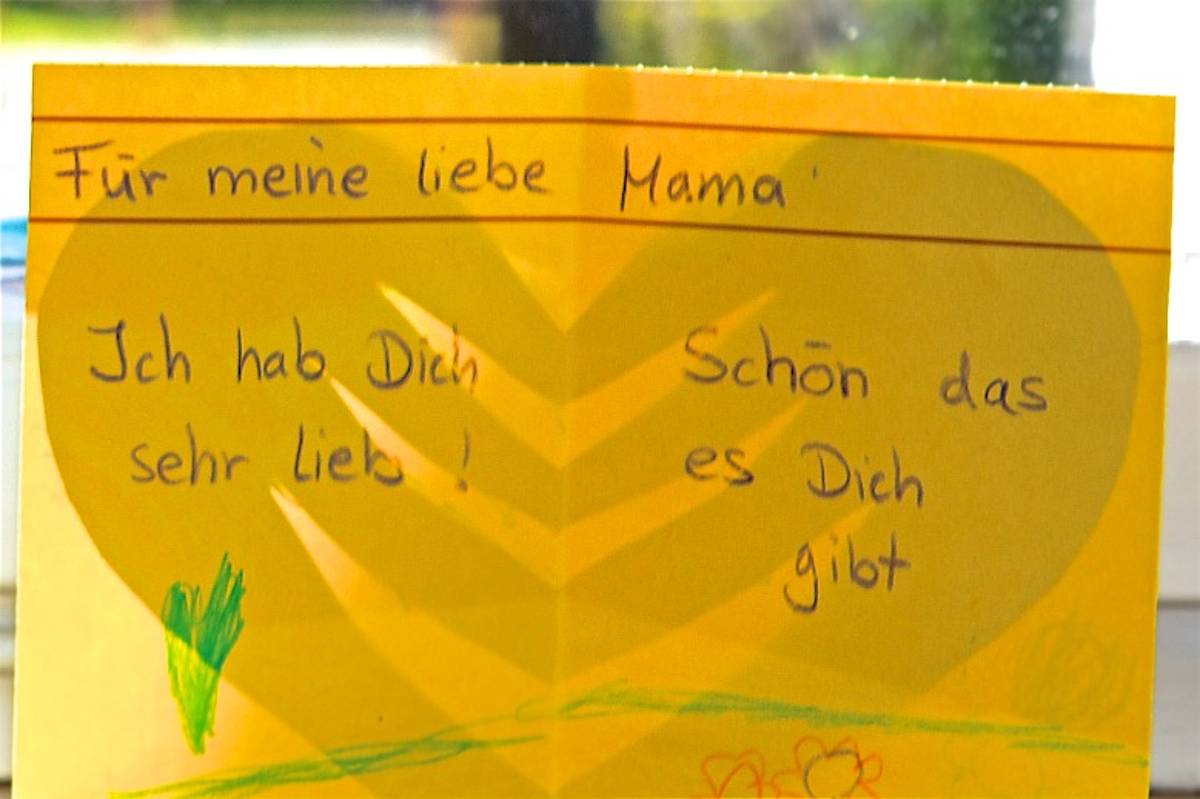 Für meine liebe Mama
Ich hab Dich
sehr lieb !
Schön das
es Dich
gibt